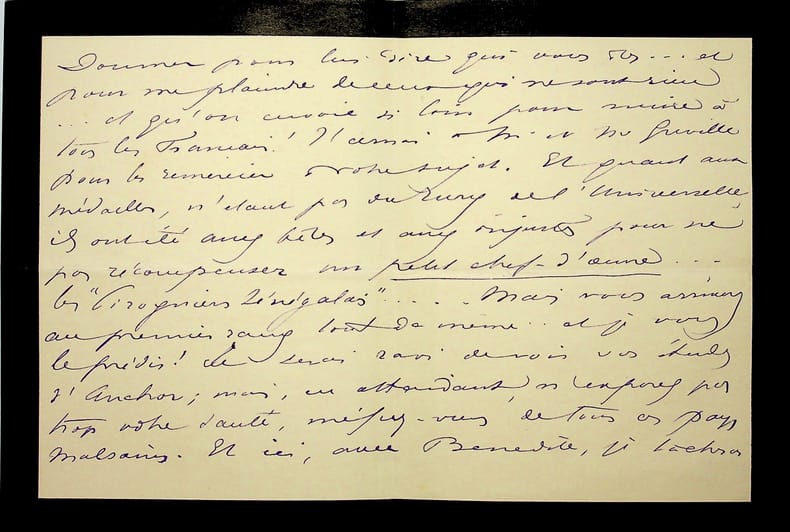 Doumer pour lui dire qui vous êtes... et
pour me plaindre de ceux qui ne sont rien
... et qu'on envoie si loin pour nuire à
tous les Français! J'écrirai à Mr et Me Gréville
pour les remercier à votre sujet. Et quant aux
médailles, n'étant pas du Jury de l'Universelle
ils ont été assez bêtes et assez injustes pour ne
pas récompenser un petit chef-d'œuvre...
les "Piroguiers Sénégalais"..... Mais vous arriverez
au premier rang tout de même.. et je vous
le prédis! Je serai ravi de voir vos études
d'Anchor; mais, en attendant, n'exposez pas
trop votre santé, méfiez-vous de tous ces pays
malsains. Et ici, avec Bénédite, je tâcherai